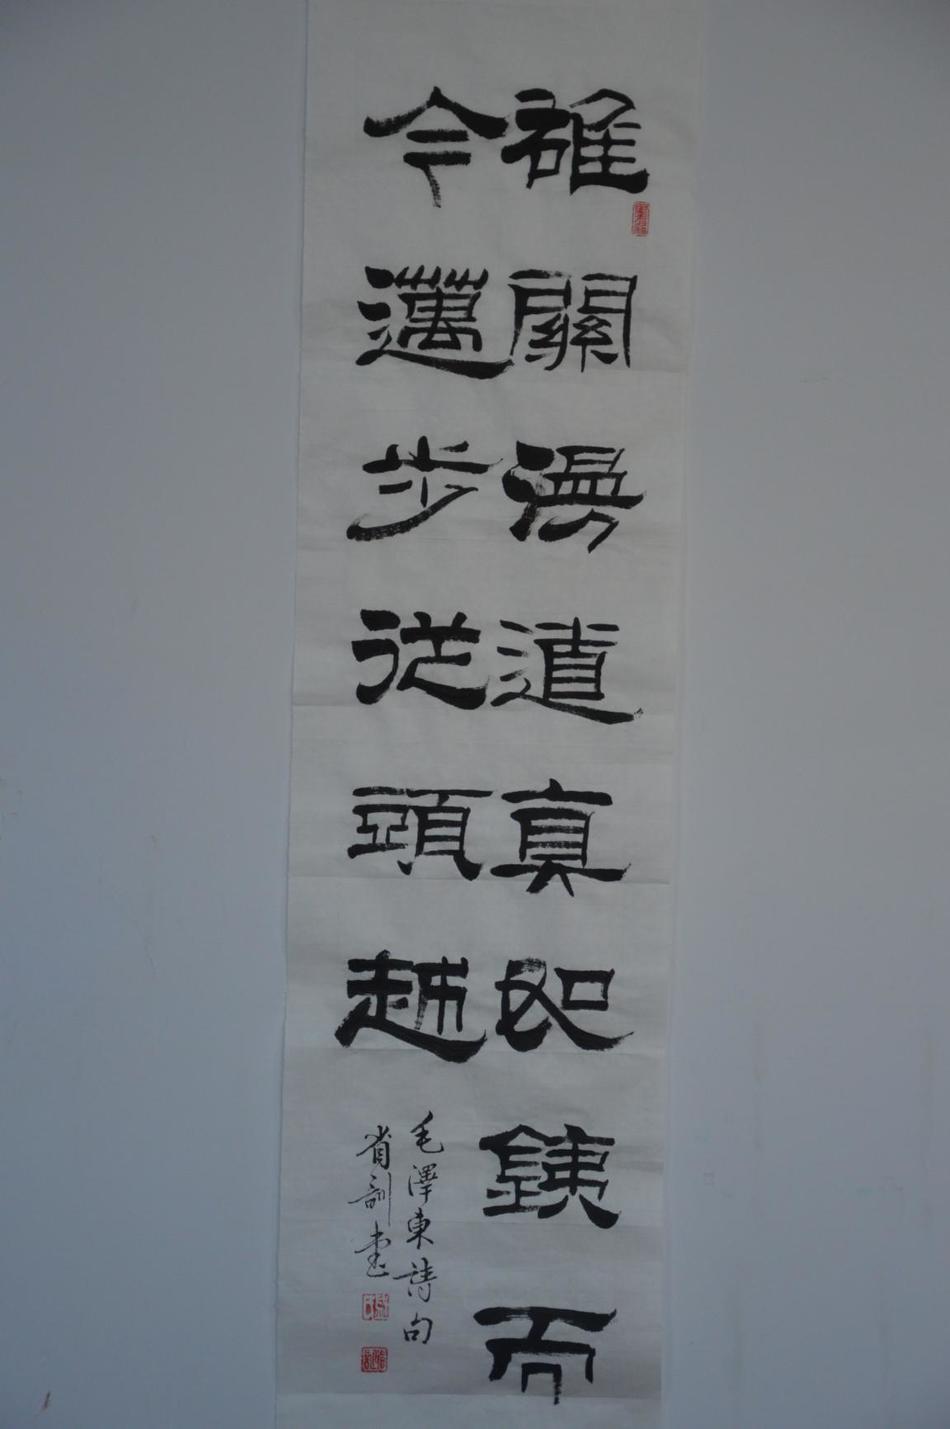 雄關漫道真如銕而
今邁步從頭越
毛澤東詩句
書